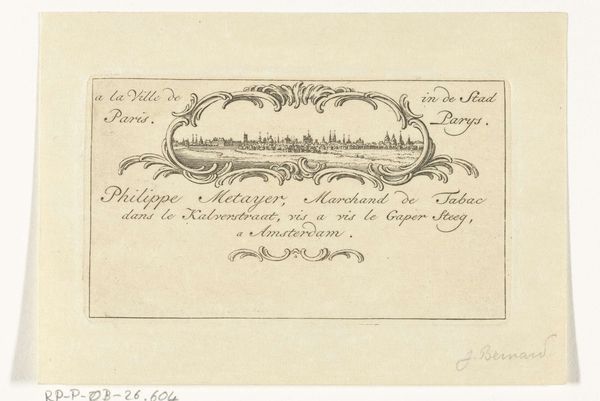 a la Ville de
Paris.
in de Stad
Parys.
Philippe Metayer, Marchand de Tabac
dans le Kalverstraat, vis a vis le Gaper Steeg,
a Amsterdam.
J. Bernard.
RP-P-OB-26.604